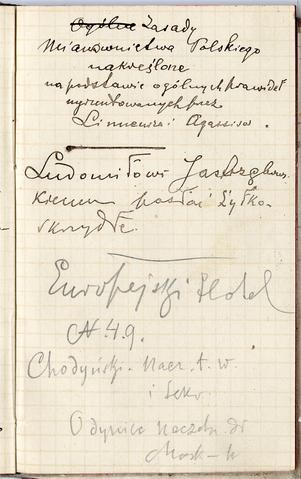 Ogólne Zasady
Mianownictwa Polskiego
nakreślone
na podstawie ogólnych prawideł
ugruntowanych przez
Linneusza i Agassisa.
Ludomiłowi
posłać Żyłko-
skrzydłe.
Europejski Hotel
N. 49.
Chodyński. Nacz. t. w.
i
Odyniec
Mosk-